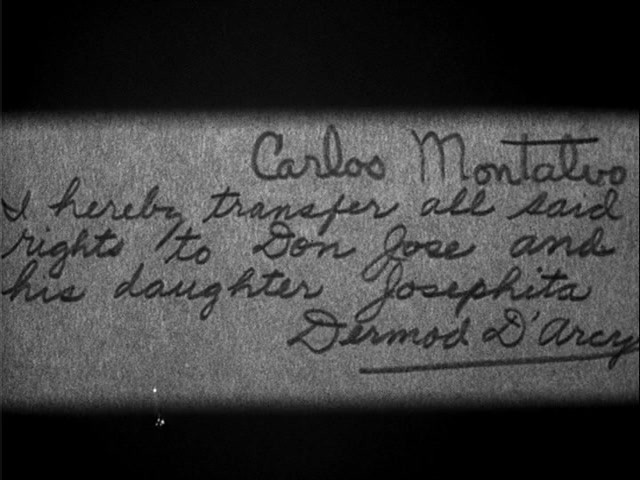 Carlos Montalvo
I hereby transfer all said
rights to Don Jose and
his daughter Josephita
Dermod D'Arcy